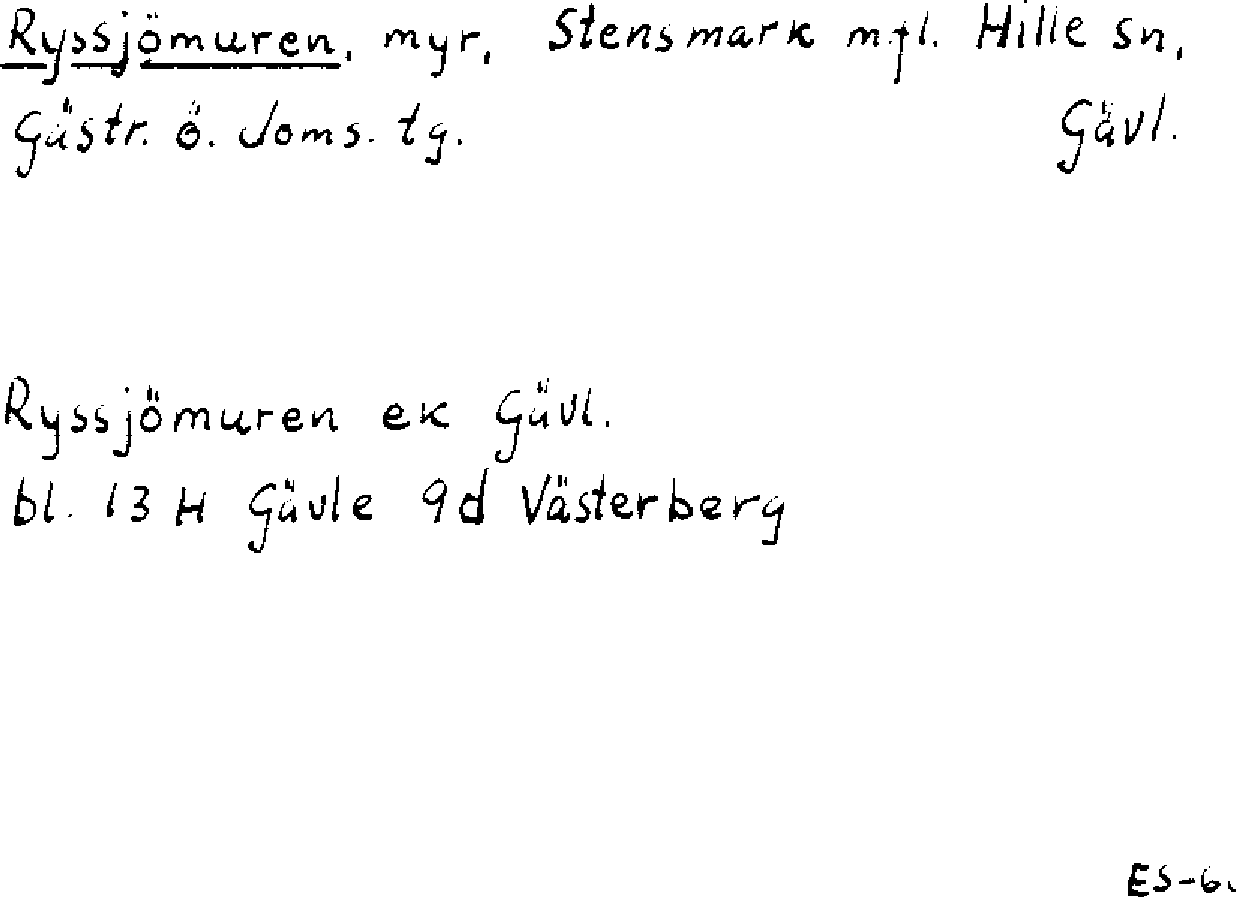 Ryssjömuren, myr, Stensmark mfl. Hille sn,
Gästr. ö. doms. tg. Gävl.
Ryssjömuren ek Gävl.
bl. 13 H Gävle 9d Västerberg
ES-61